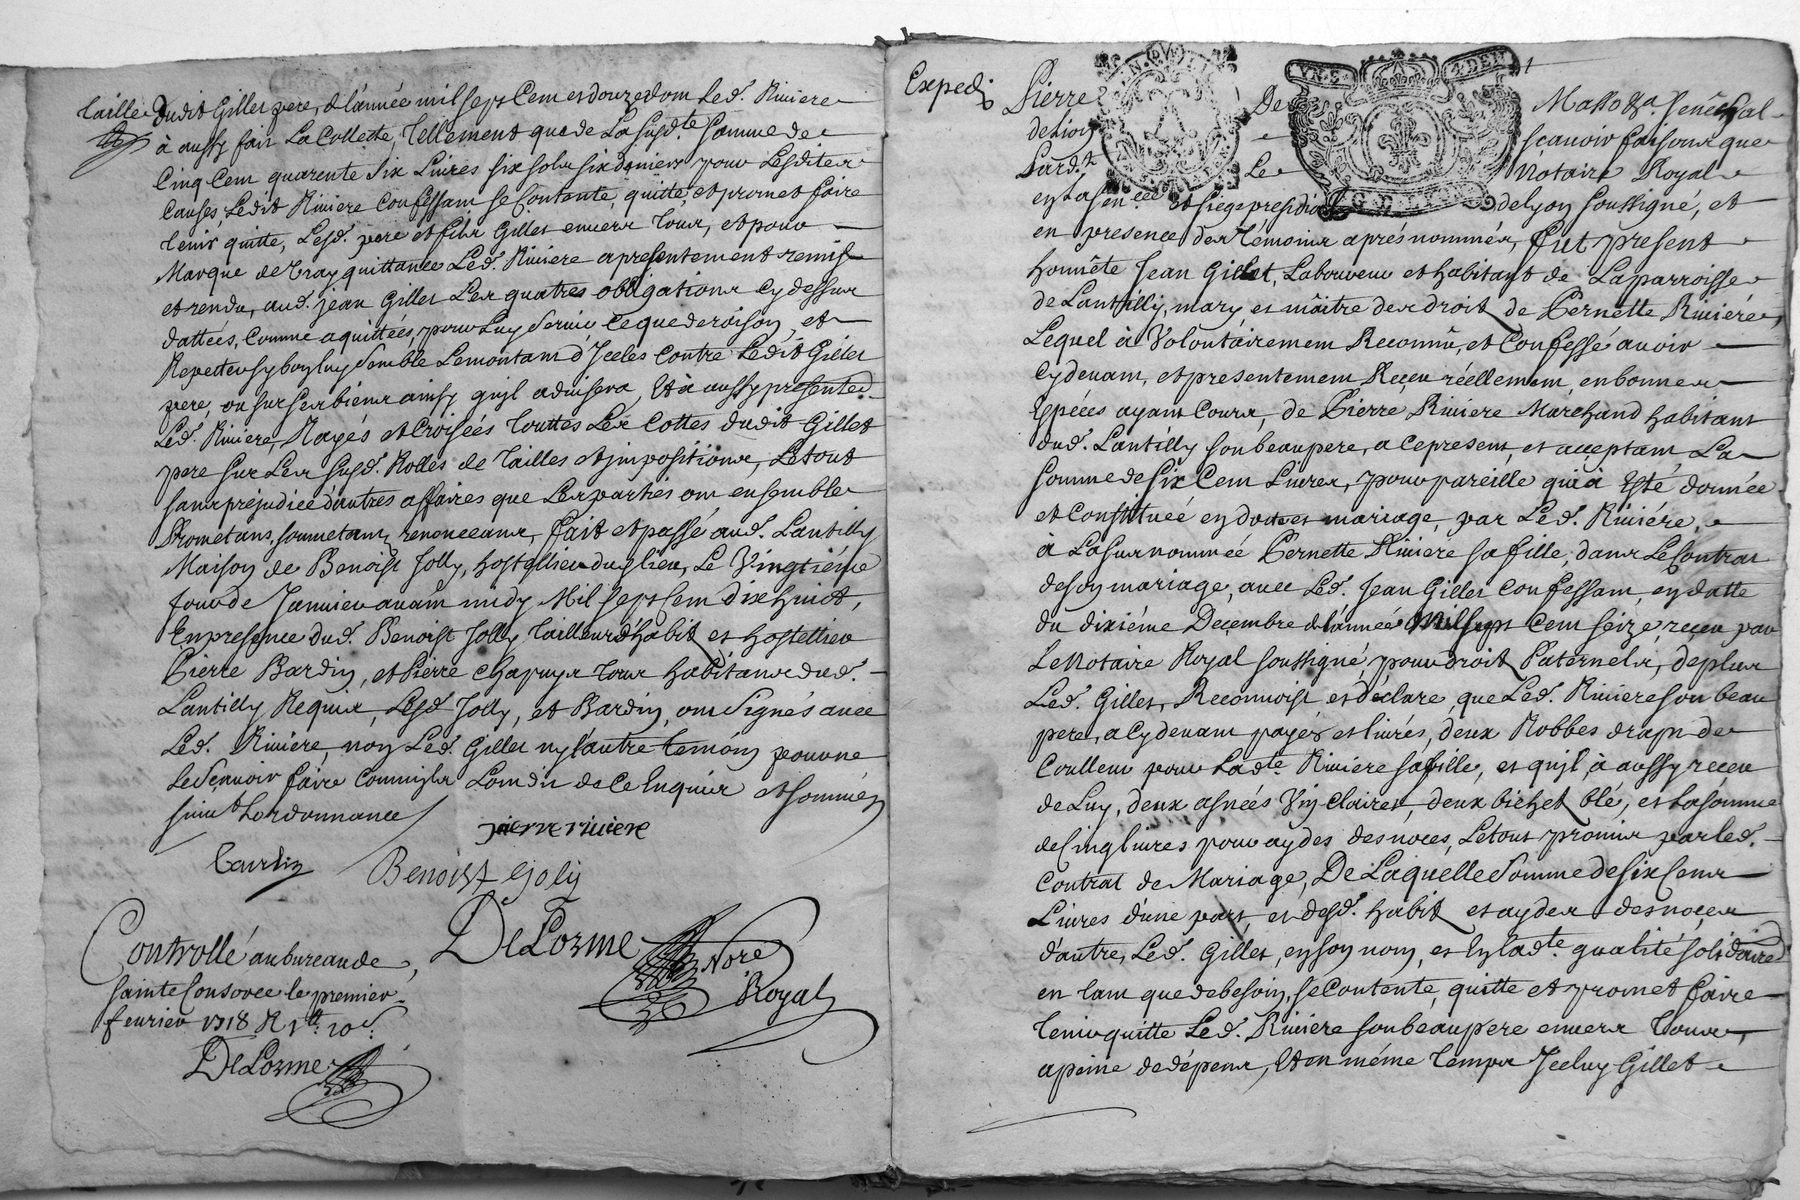 taille dudit Gillet pere, de l'année mil sept Cent et douze dont Led. Riviere
à aussy fait La Collecte, Tellement que de La Susd.te Somme de
Cinq Cent quarente Six Livres six sols six deniers pour Lesdites
Causes, Ledit Riviere Confessant se Contente, quitte, et promet faire
tenir quitte, Lesd. pere et fils Gillet envers tous, et pour
Marque de vray quittance Led. Riviere a presentement remis
et rendu, aud. Jean Gillet Les quatres obligations Cy dessus
dattées, Comme aquittées, pour Luy Servir Ce que de raison, et
Repetter sy bon luy Semble Le montant d'Jcelles Contre Ledit Gillet
pere, ou sur ses biens ainsy qu'jl advisera, Et à aussy presentem.
Led. Riviere, Rayés et Croisées touttes Les Cottes dudit Gillet
pere sur Les susd. Rolles de tailles et jmpositions, Le tout
sans préjudice d'autres affaires que Les parties ont ensemble
Prometans, soumetans, renonceans, fait et passé aud. Lantilly
Maison de Benoist Jolly, hostellier dud lieu, Le Vingtiéme
jour de Janvier avant midy Mil sept Cent dix huict,
En presence dud. Benoist Jolly tailleur d'habit et hostellier
Pierre Bardin, et Pierre Chapuys tous habitans dud.
Lantilly Requis, Lesd. Jolly, et Bardin, ont Signés avec
Led. Riviere, non Led. Gillet ny l'autre temoin pour ne
le Sçavoir faire Commis Lont dit de Ce Enquis et sommés
suiv.t Lordonnance
pierre riviere
bardin
Benoist Joly
DeLorme Nore
Royal
Controllé au bureau de
Sainte Consorce le premier
fevrier 1718 R 1tt 10s.
DeLorme
Expedié
Pierre De Masso &a. Senéchal
de Lion scavoir faisons que
Pard.t Le Notaire Royal
en La sen.cée et siege presidial de Lyon soussigné, et
en presence des temoins aprés nommés, fut present
honnête Jean Gillet, Laboureur et habitant de La parroisse
de Lantilly, mary et maître des droit de Pernette Riviére,
Lequel à Volontairement Reconnû, et Confessé avoir
Cy devant, et presentement Reçeu réellement, en bonnes
Espéces ayant Cours, de Pierre Riviere Marchand habitant
dud. Lantilly son beaupere, a Ce present, et acceptant La
somme de Six Cent Livres, pour pareille qui à Esté donnée
et Constituée en dotte et mariage, par Led. Riviére,
à La surnommée Pernette Riviere sa fille, dans Le Contrat
de son mariage, avec Led. Jean Gillet Confessant, en datte
du dixiéme Decembre de l'année Mil sept Cent seize, reçeu par
Le Notaire Royal soussigné, pour droit Paternels, de plus
Led. Gillet, Reconnoist et déclare, que Led. Riviere son beau
pere, a Cy devant payés et livrés, deux Robbes drap de
Coulleur pour Lad.te Riviere sa fille, et qu'jl à aussy reçeu
de Luy, deux asnées Vin Clairet, deux bichet blé, et La somme
de Cinq livres pour aydes des noces, Le tout promis par led.
Contrat de Mariage, De Laquelle Somme de six Cens
Livres d'une part, et desd. habit et aydes des noces
d'autre, Led. Gillet, en son nom, et En lad.te qualité solidaire
en tant que de besoin, se Contente, quitte et promet faire
tenir quitte Led. Riviere son beau pere envers tous,
a peine de dépens, Et en méme temps Jceluy Gillet